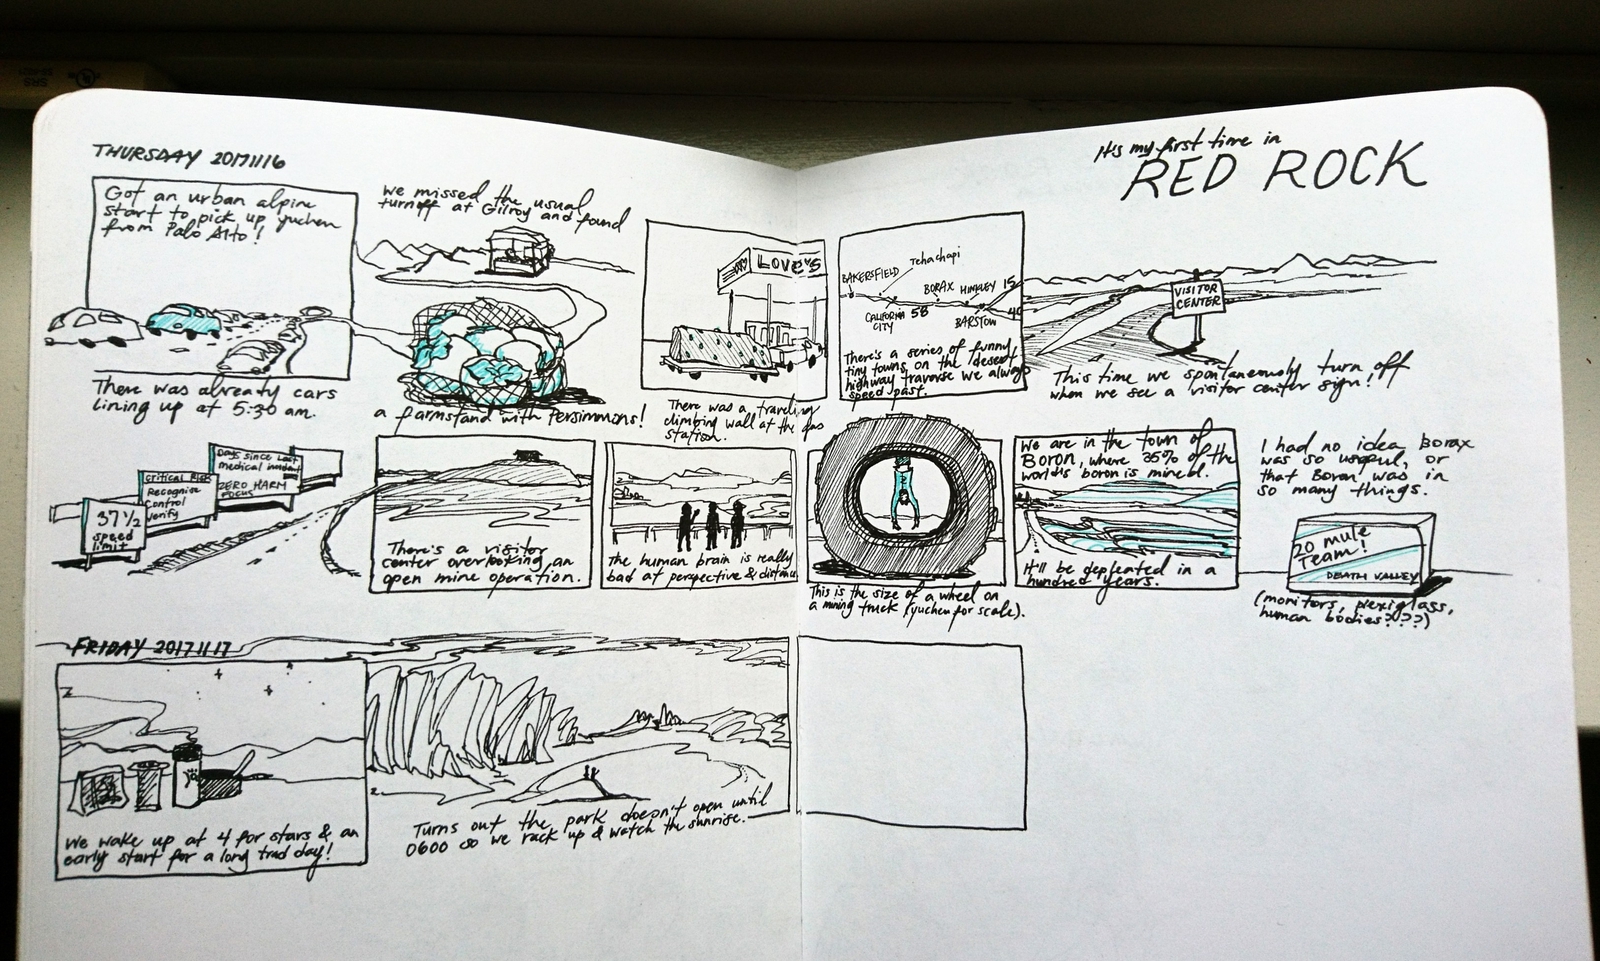 THURSDAY 20171116
It's my first time in
RED ROCK
Got an urban alpine
start to pick up yuchen
from Palo Alto!
There was already cars
lining up at 5:30 am.
we missed the usual
turnoff at Gilroy and found
a farmstand with Persimmons!
LOVE'S
There was a traveling
climbing wall at the gas
station.
BAKERSFIELD
Tehachapi
BORAX
HINKLEY
15
CALIFORNIA
CITY
58
BARSTOW
40
There's a series of funny
tiny towns on the desert
highway traverse we always
speed past.
VISITOR
CENTER
This time we spontaneously turn off
when we see a visitor center sign!
37 1/2
speed
limit
Critical Risk
Recognise
Control
Verify
Days since Last
medical incident
ZERO HARM
FOCUS
There's a visitor
center overlooking an
open mine operation.
The human brain is really
bad at perspective & distance
This is the size of a wheel on
a mining truck (yuchen for scale).
We are in the town of
Boron, where 35% of the
world's boron is mined.
It'll be depleated in a
hundred years.
I had no idea Borax
was so useful, or
that Boron was in
so many things.
20 mule
Team!
DEATH VALLEY
(monitors, plexiglass,
human bodies???)
FRIDAY 20171117
We wake up at 4 for stars & an
early start for a long trad day!
Turns out the park doesn't open until
0600 so we rack up & watch the sunrise.